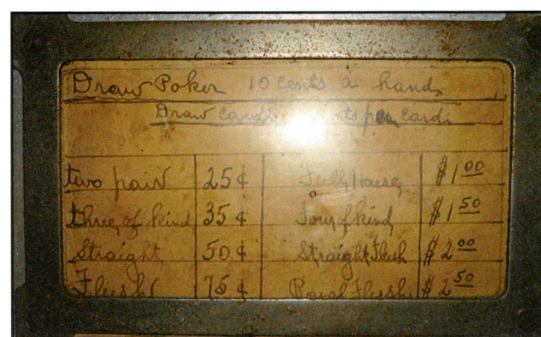 Draw Poker 10 cents a hand
Draw cards cents per card
two pair 25¢ Full House $1.00
three of kind 35¢ Four of kind $1.50
Straight 50¢ Straight Flush $2.00
Flush 75¢ Royal Flush $2.50